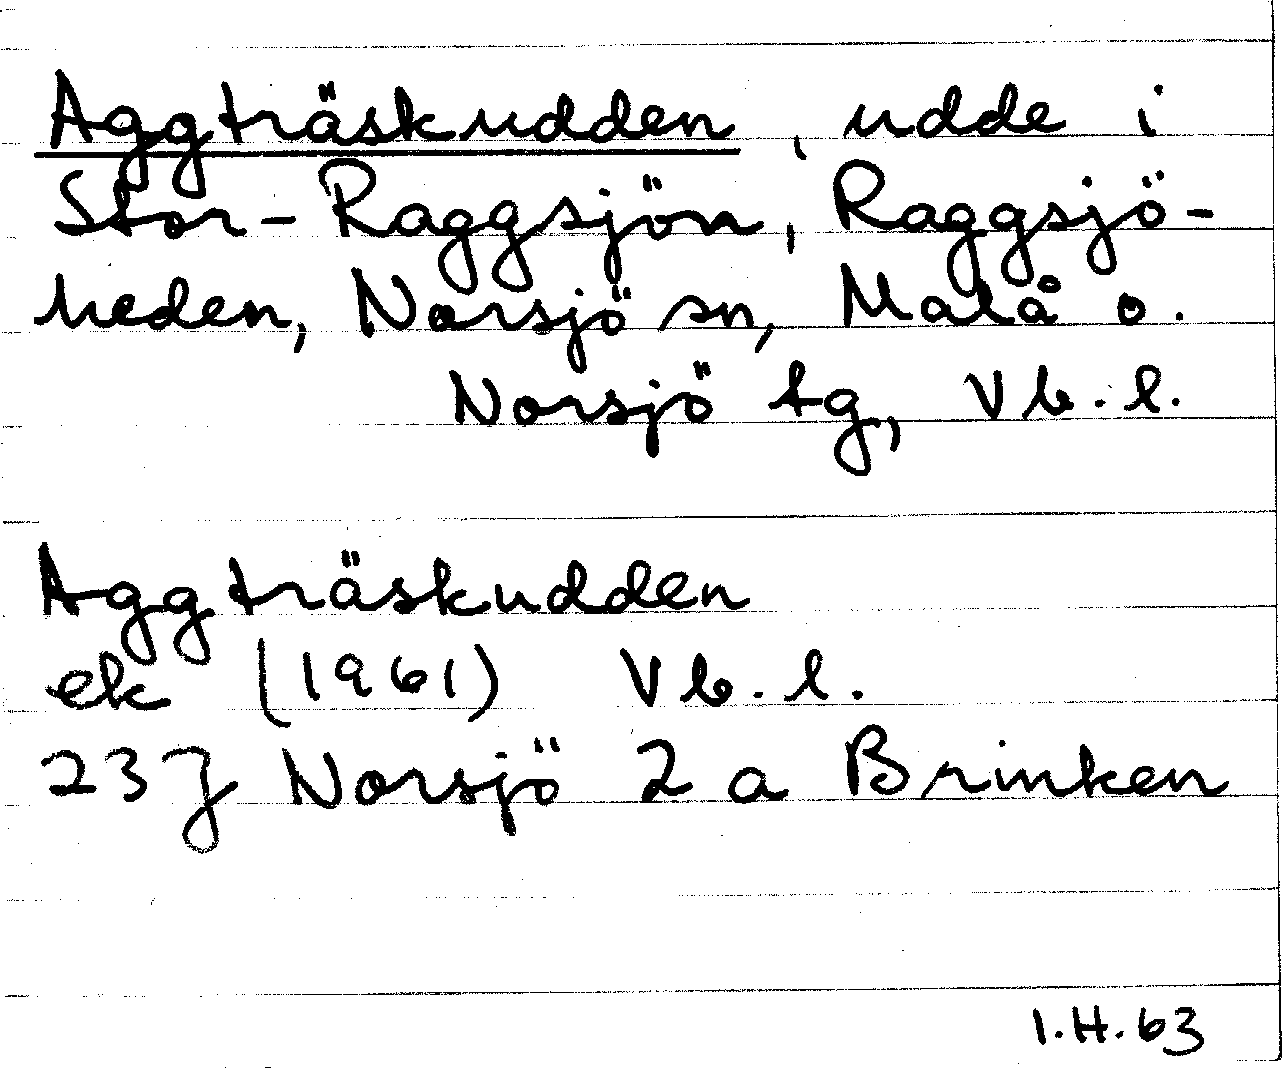 Aggträskudden, udde i
Stor-Raggsjön, Raggsjö-
heden, Norsjö sn, Malå o.
Norsjö tg, Vb. l.
Aggträskudden
ek (1961) Vb. l.
23J Norsjö 2 a Brinken
I.H.63